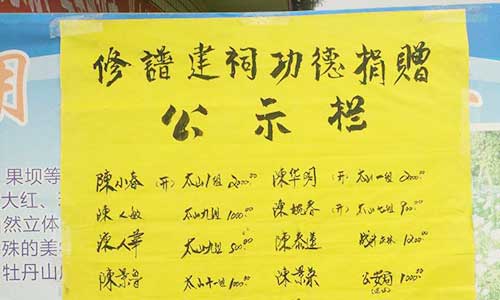 修譜建祠功德捐贈
公示栏
陳小春 (开) 太山1组 2000.00 陳华明 (开) 太山一组 2000.00
陳人敏 太山九组 1000.00 陳 春 (开) 太山七组 900.00
陳人華 太山九组 500.00 陳泰運 1200
陳景魯 太山十组 1000 陳景荣 1000.00
用
果坝等
大红、
然立体
殊的美
牡丹山